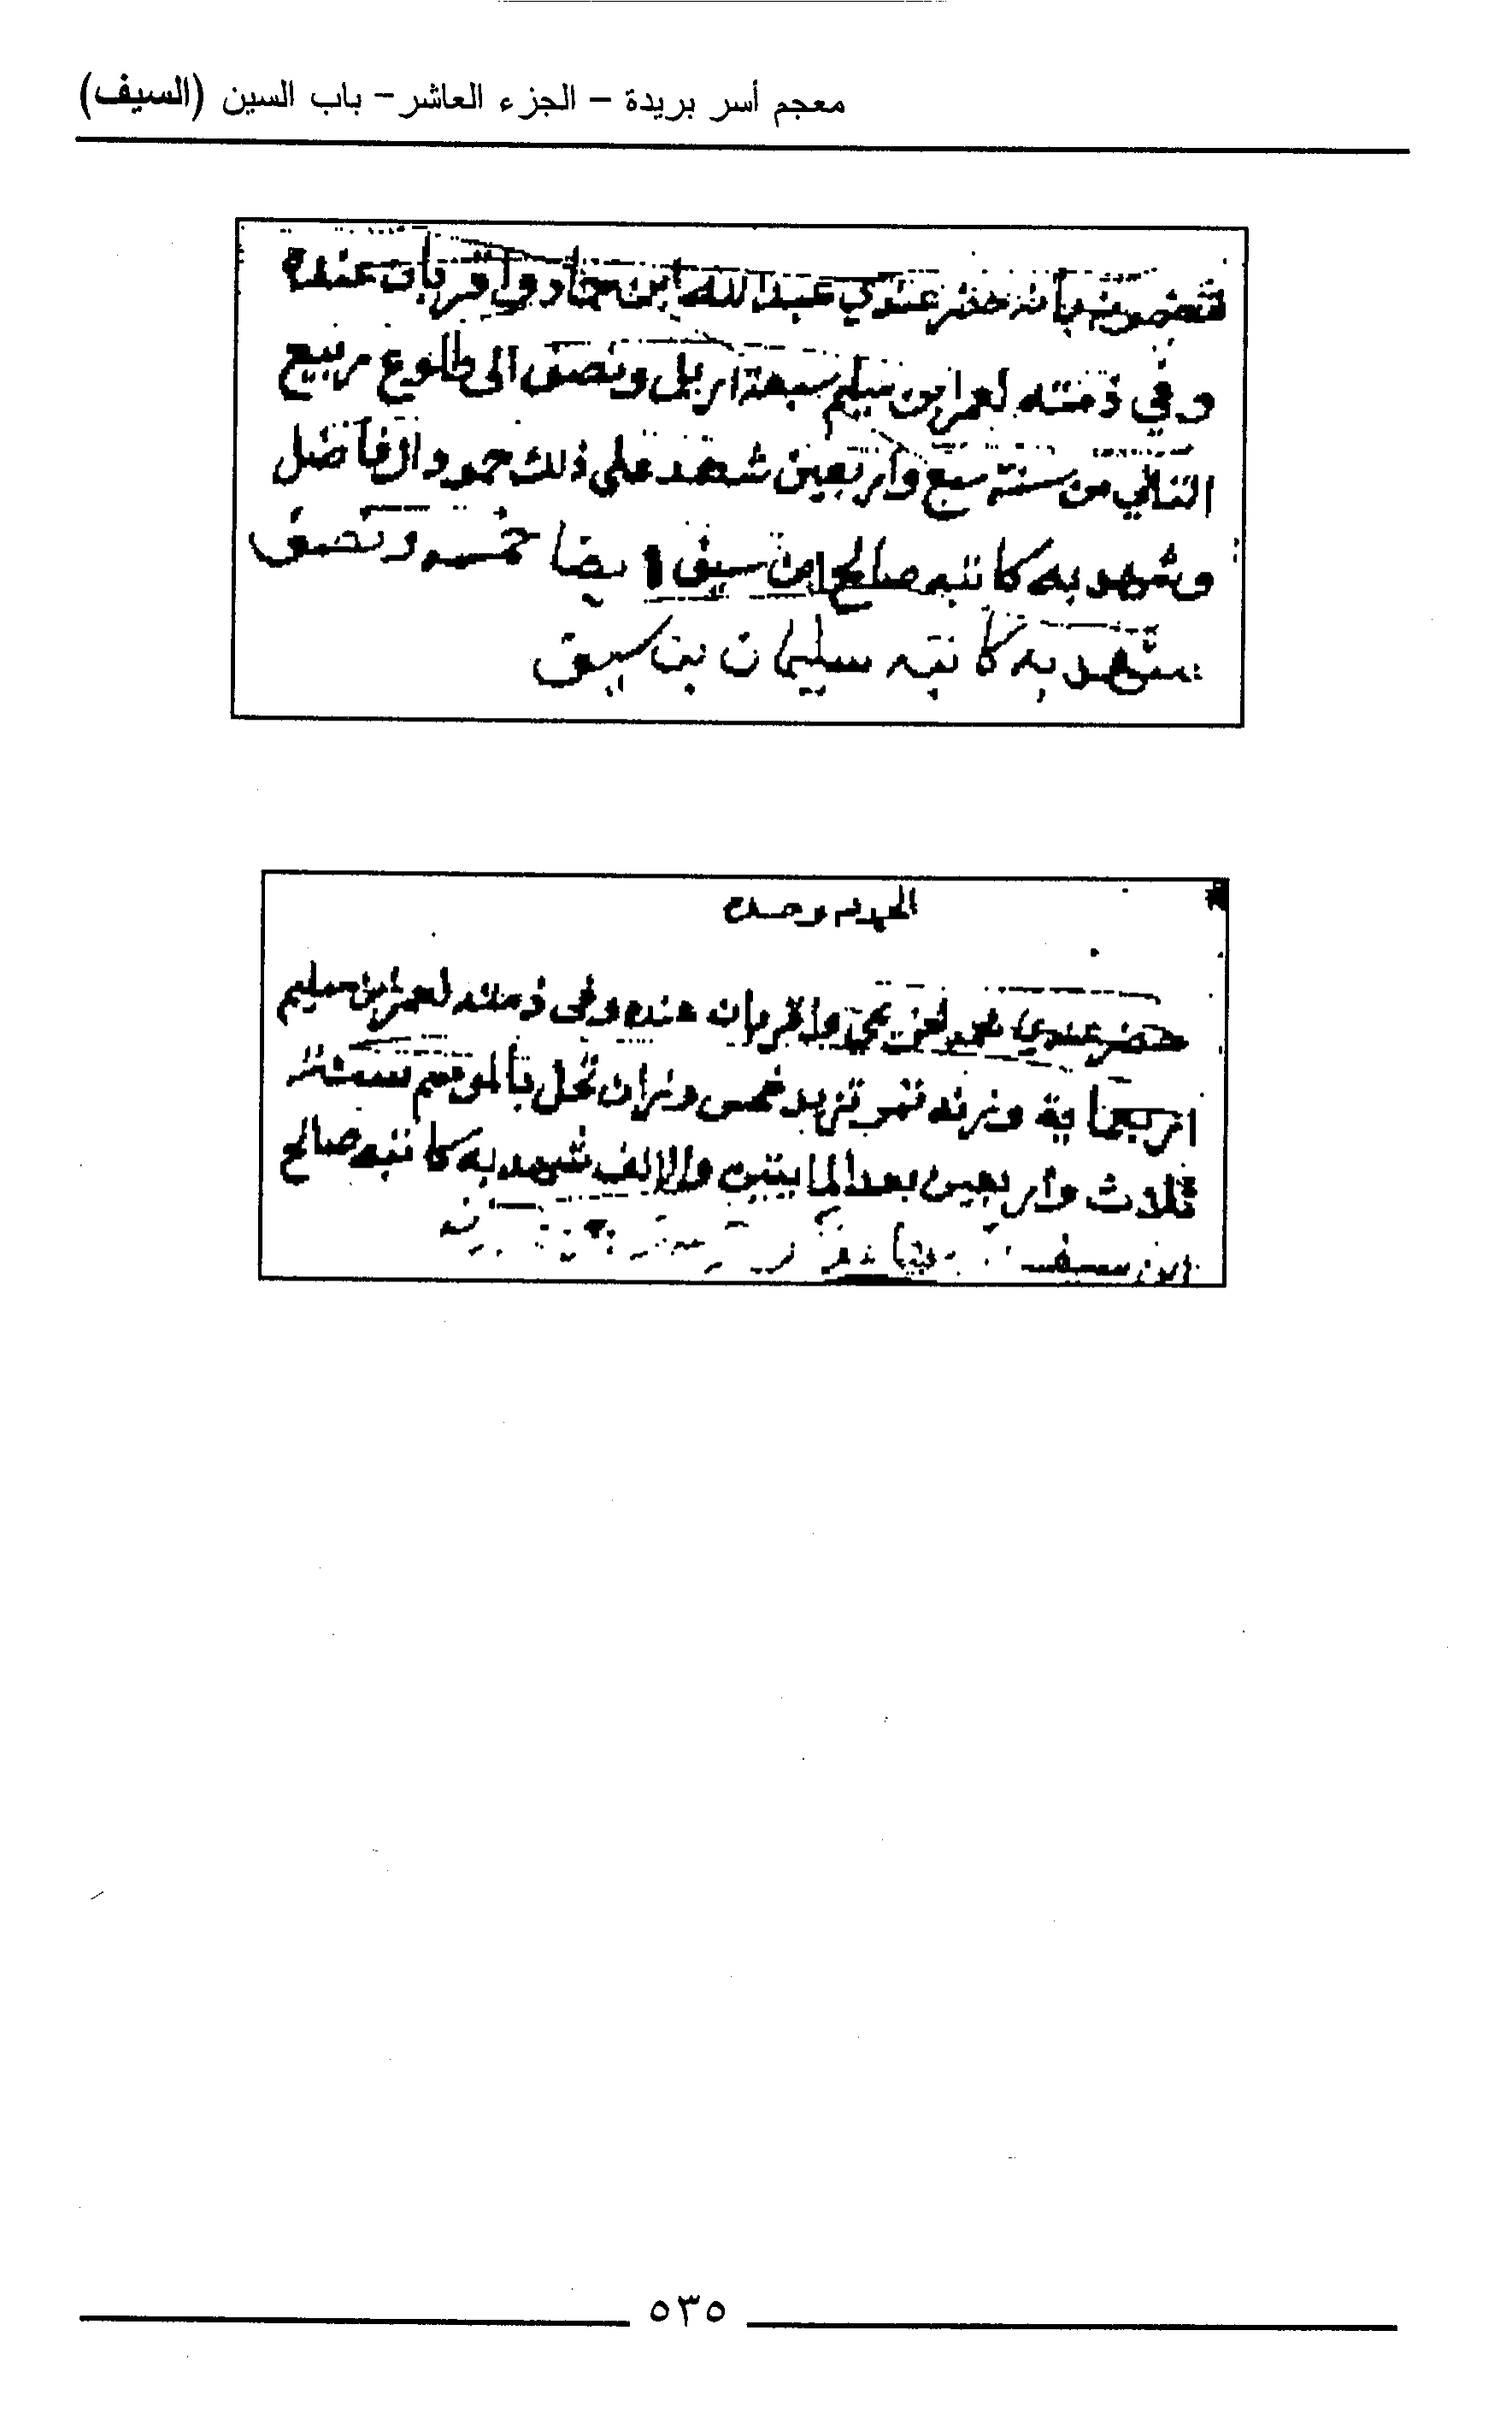 معجم أسر بريدة – الجزء العاشر – باب السين (السيف)
حضر عندي عبدالله ابن حماد واقر بان عنده
وفي ذمته لعمر ابن سليم سبعة اريل ونصف الى طلوع ربيع
الثاني من سنة سبع واربعين شهد على ذلك حمود الفاضل
وشهد به كاتبه صالح ابن سيف ايضا خمسه ونصف
شهد به كاتبه سليمان بن سيف
الحمد لله وحده
حضر عندي محمد واقر بان عنده وفي ذمته لعمر ابن سليم
اربعماية وزنه تمر تزيد خمس وزان نخل بالموسم سنة
ثلاث واربعين بعد المايتين والالف شهد به كاتبه صالح
ابن سيف
٥٣٥